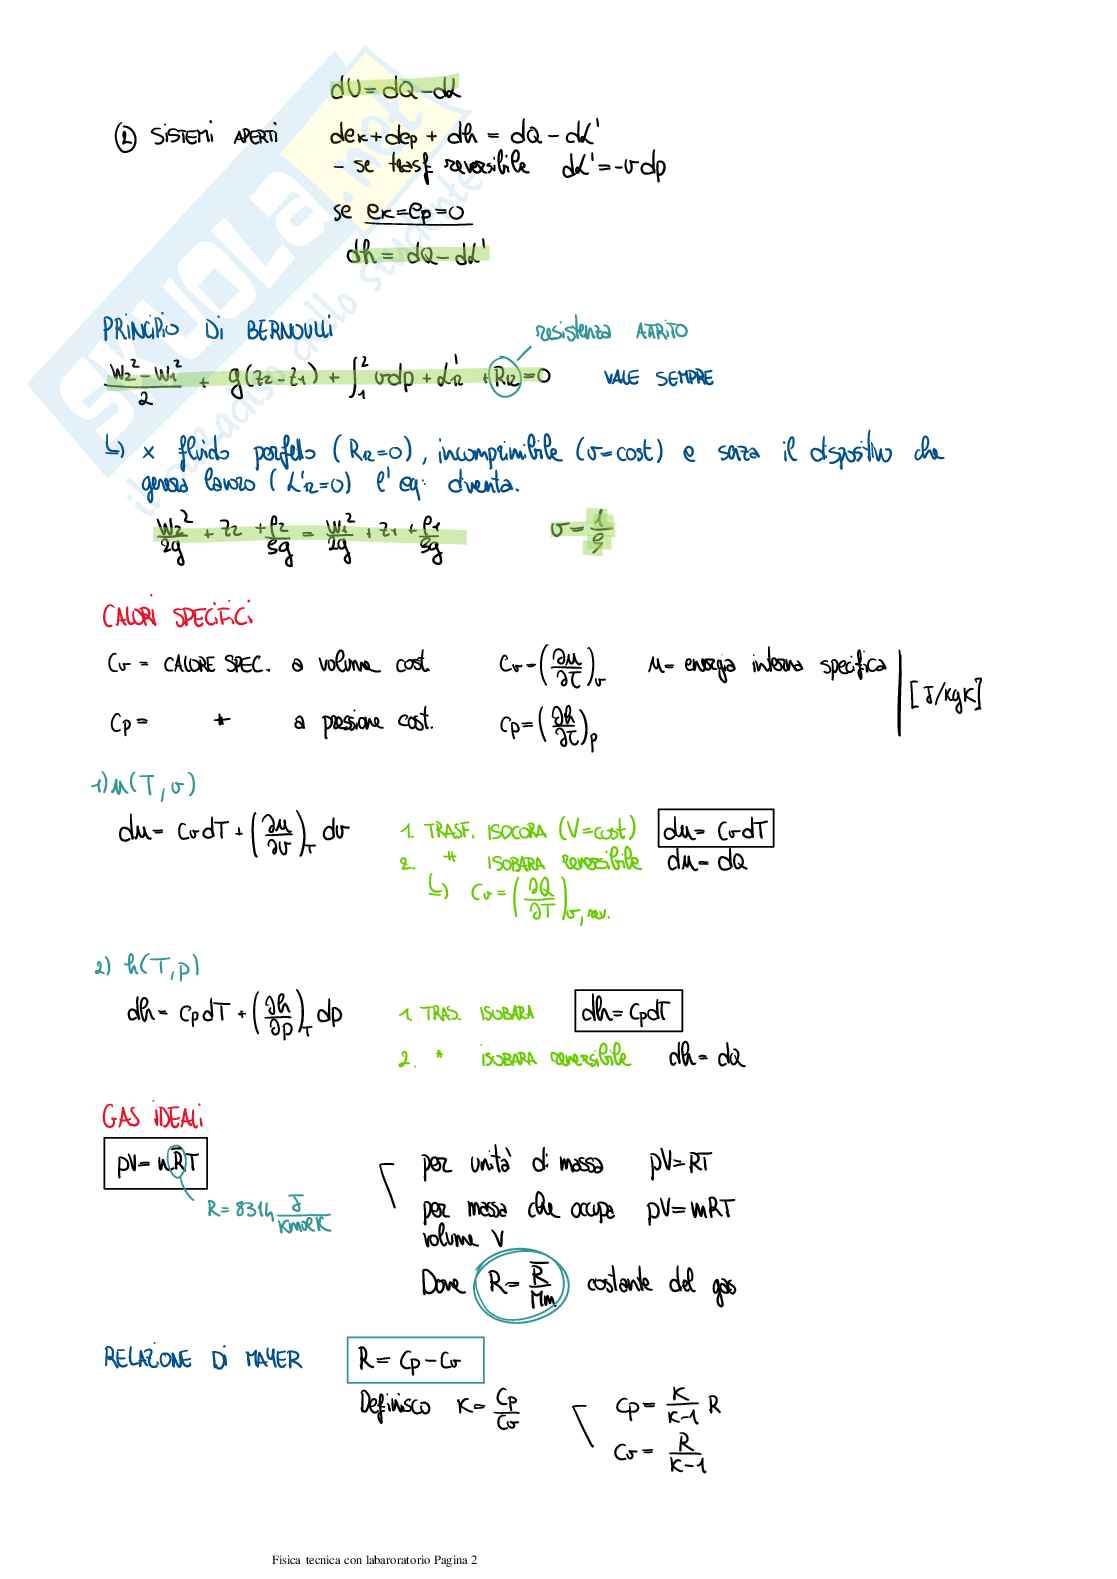 dU = dQ - dL
② SISTEMI APERTI dek + dep + dh = dQ - dL'
- se trasf reversibile dL' = -vdp
se ek = ep = 0
dh = dQ - dL'
PRINCIPIO DI BERNOULLI
resistenza ATTRITO
(w2² - w1²)/2 + g(z2 - z1) + ∫₁² vdp + L'12 + R12 = 0 VALE SEMPRE
↳ x fluido perfetto (R12=0), incomprimibile (v=cost) e senza il dispositivo che
genera lavoro (L'12=0) l'eq. diventa.
w2²/2g + z2 + p2/ρg = w1²/2g + z1 + p1/ρg v = 1/ρ
CALORI SPECIFICI
Cv = CALORE SPEC. a volume cost. Cv = (∂u/∂T)v u = energia interna specifica
[J/kgK]
Cp = " a pressione cost. Cp = (∂h/∂T)p
1) u(T, v)
du = CvdT + (∂u/∂v)T dv 1. TRASF. ISOCORA (V=cost) du = CvdT
2. " ISOBARA reversibile du = dQ
↳ Cv = (∂Q/∂T)v, rev.
2) h(T, p)
dh = CpdT + (∂h/∂p)T dp 1. TRAS. ISOBARA dh = CpdT
2. " ISOBARA reversibile dh = dQ
GAS IDEALI
pV = nR̅T per unità di massa pV = RT
R = 8314 J/KmolK
per massa che occupa pV = mRT
volume V
Dove R = R̅/Mm costante del gas
RELAZIONE DI MAYER R = Cp - Cv
Definisco K = Cp/Cv Cp = K/(K-1) R
Cv = R/(K-1)
SKUOLA.net
il paradiso dello studente
Fisica tecnica con labaroratorio Pagina 2